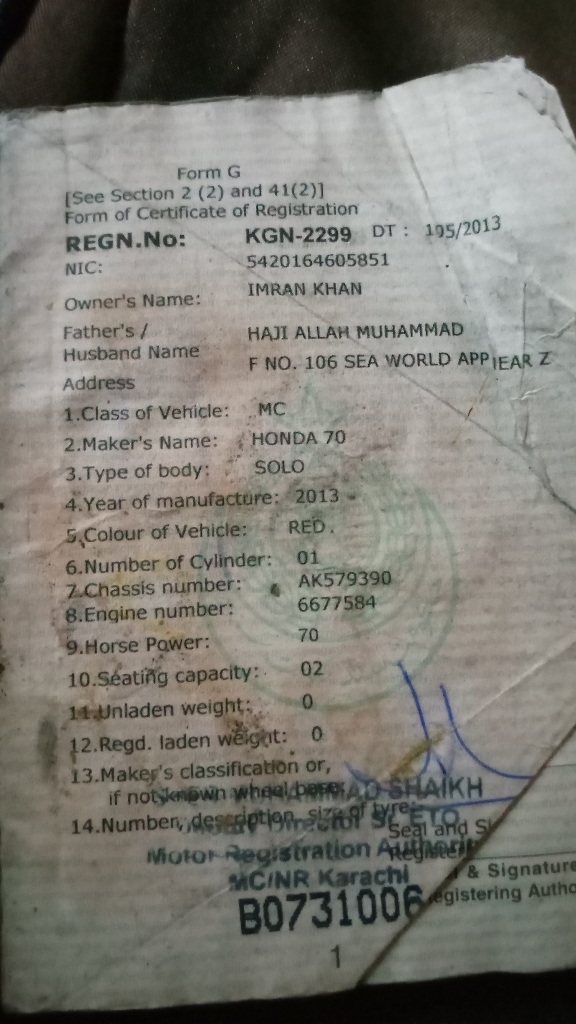 Form G
[See Section 2 (2) and 41(2)]
Form of Certificate of Registration
REGN.No: KGN-2299 DT : 195/2013
NIC: 5420164605851
Owner's Name: IMRAN KHAN
Father's / Husband Name HAJI ALLAH MUHAMMAD
Address F NO. 106 SEA WORLD APP IEAR Z
1.Class of Vehicle: MC
2.Maker's Name: HONDA 70
3.Type of body: SOLO
4.Year of manufacture: 2013
5.Colour of Vehicle: RED.
6.Number of Cylinder: 01
7.Chassis number: AK579390
8.Engine number: 6677584
9.Horse Power: 70
10.Seating capacity: 02
11.Unladen weight: 0
12.Regd. laden weight: 0
13.Maker's classification or,
if not known wheel base
SHAIKH
14.Number, description, size of tyre:
Director ETO
Seal and
Motor Registration
MC/NR Karachi
& Signature
egistering Autho
B0731006
1